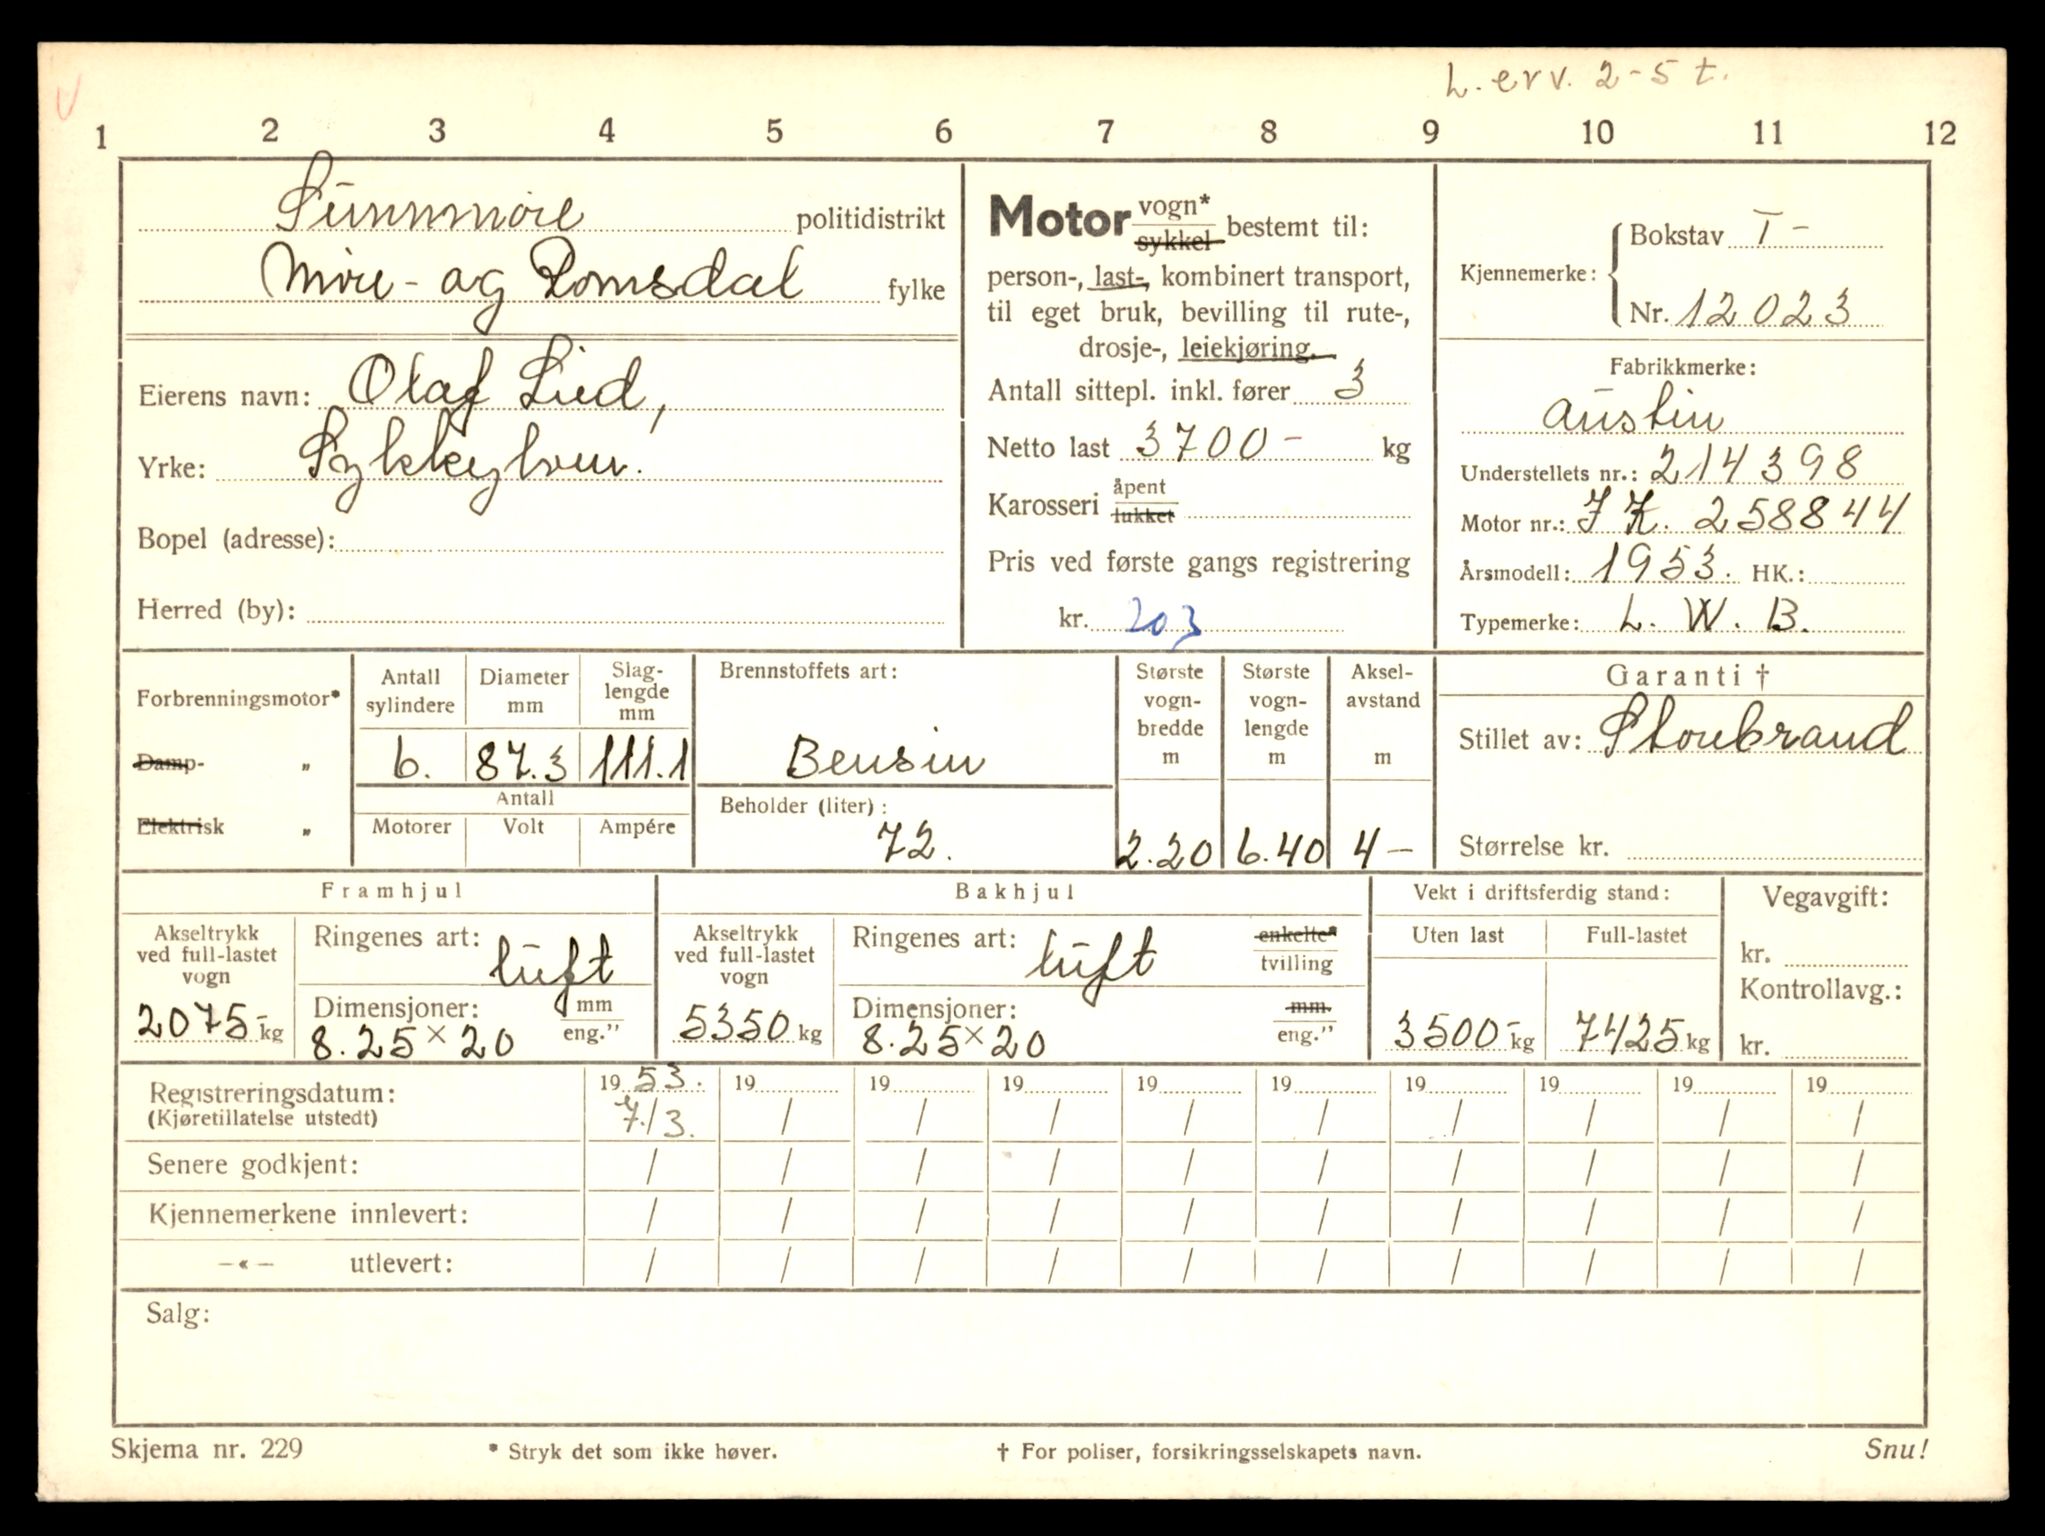 L. erv. 2-5 t.
1 2 3 4 5 6 7 8 9 10 11 12
Sunnmøre politidistrikt
Møre- og Romsdal fylke
Eierens navn: Olaf Lied,
Yrke: Sykkylven.
Bopel (adresse):
Herred (by):
Motor vogn* sykkel bestemt til:
person-, last-, kombinert transport,
til eget bruk, bevilling til rute-,
drosje-, leiekjøring.
Antall sittepl. inkl. fører 3
Netto last 3700- kg
Karosseri åpent lukket
Pris ved første gangs registrering
kr. 203
Kjennemerke: Bokstav T-
Nr. 12023
Fabrikkmerke:
Austin
Understellets nr.: 214398
Motor nr.: 258844
Årsmodell: 1953. HK.:
Typemerke: L. W. B.
Forbrenningsmotor*
Damp- „
Elektrisk „
Antall sylindere
6.
Diameter mm
87.3
Slaglengde mm
111.1
Antall
Motorer Volt Ampére
Brennstoffets art:
Bensin
Beholder (liter):
72.
Største vognbredde m
2.20
Største vognlengde m
6.40
Akselavstand m
4 —
Garanti †
Stillet av: Storebrand
Størrelse kr.
Framhjul
Akseltrykk ved full-lastet vogn
2075- kg
Ringenes art: luft
Dimensjoner: mm eng.”
8.25 × 20
Bakhjul
Akseltrykk ved full-lastet vogn
5350 kg
Ringenes art: luft enkelte* tvilling
Dimensjoner: mm. eng.”
8.25 × 20
Vekt i driftsferdig stand:
Uten last Full-lastet
3500- kg 7425 kg
Vegavgift:
kr.
Kontrollavg.:
kr.
Registreringsdatum: 1953. 19 19 19 19 19 19 19 19 19
(Kjøretillatelse utstedt) 7./3. / / / / / / / / /
Senere godkjent: / / / / / / / / / /
Kjennemerkene innlevert: / / / / / / / / / /
—«— utlevert: / / / / / / / / / /
Salg:
Skjema nr. 229 * Stryk det som ikke høver. † For poliser, forsikringsselskapets navn. Snu!